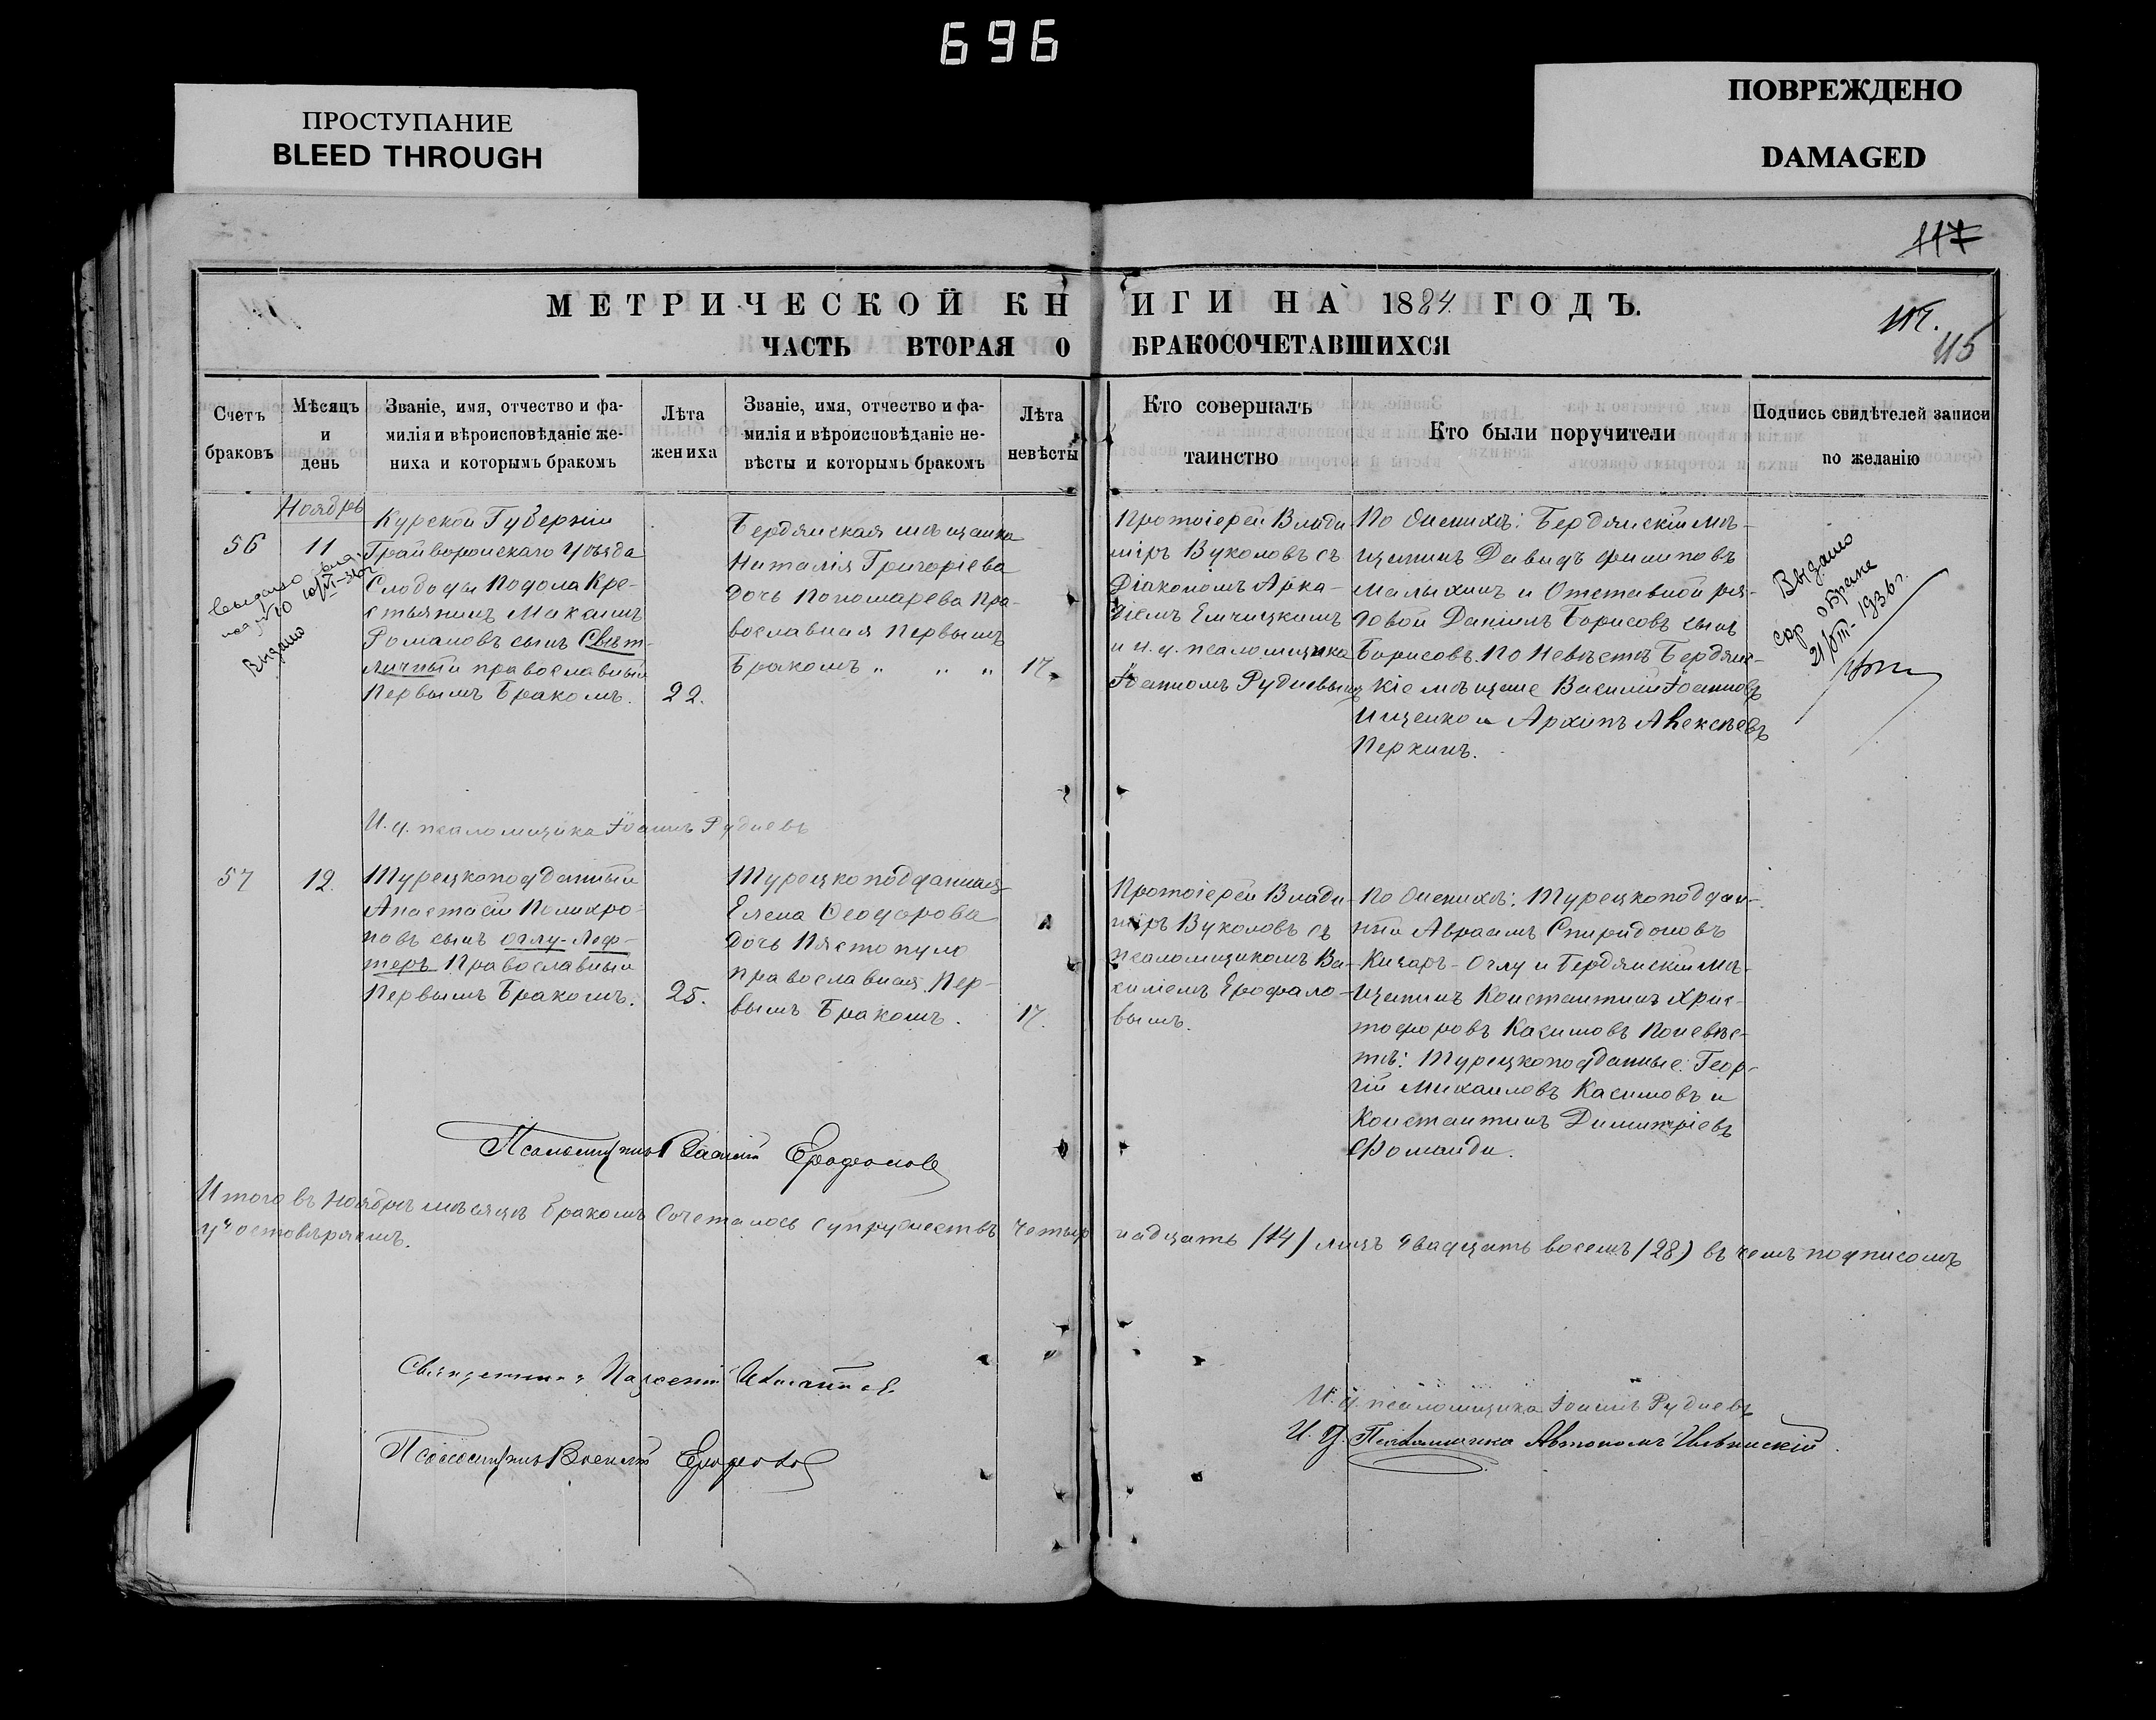 696
ПРОСТУПАНИЕ
BLEED THROUGH
ПОВРЕЖДЕНО
DAMAGED
117
МЕТРИЧЕСКОЙ КНИГИ НА 1884 ГОДЪ.
ЧАСТЬ ВТОРАЯ О БРАКОСОЧЕТАВШИХСЯ
117.
115
Счетъ
браковъ
Мѣсяцъ
и
день
Званіе, имя, отчество и фа-
милія и вѣроисповѣданіе же-
ниха и которымъ бракомъ
Лѣта
жениха
Званіе, имя, отчество и фа-
милія и вѣроисповѣданіе не-
вѣсты и которымъ бракомъ
Лѣта
невѣсты
Кто совершалъ
таинство
Кто были поручители
Подпись свидѣтелей записи
по желанію
Ноябрь
56
11
Выдано
Курской Губерніи
Грайворонскаго Уѣзда
Слободы Подола Кре-
стьянинъ Максимъ
Романовъ сынъ Свѣт-
личный православный
Первымъ Бракомъ.
22.
Бердянская мѣщанка
Наталія Григоріева
дочь Пономарева Пра-
вославная Первымъ
Бракомъ " " "
17.
Протоіерей Влади-
міръ Вуколовъ съ
Діакономъ Арка-
діемъ Емчицкимъ
и и. д. псаломщика
Іоанномъ Рудневымъ
По Женихѣ: Бердянскій Мѣ-
щанинъ Давидъ Филиповъ
Малыхинъ и Отставной ря-
довой Даніилъ Борисовъ сынъ
Борисовъ. По Невѣстѣ Бердянс-
кіе мѣщане Василій Іоанновъ
Ищенко и Архипъ Алексѣевъ
Перкинъ.
Выдано
о браке
21/VIII-1936 г.
И. д. псаломщика Іоаннъ Рудневъ
57
12.
Турецкоподданный
Анастасій Поликро-
новъ сынъ Оглу-Леф-
теръ Православный
Первымъ Бракомъ.
25.
Турецкоподданная
Елена Ѳеодорова
дочь Пястопуло
православная Пер-
вымъ Бракомъ.
17.
Протоіерей Влади-
міръ Вуколовъ съ
псаломщикомъ Ва-
силіемъ Ерофало-
вымъ.
По Женихѣ: Турецкоподдан-
ный Авраамъ Спиридоновъ
Кичаръ-Оглу и Бердянскій Мѣ-
щанинъ Константинъ Хрис-
тофоровъ Касимовъ По невѣс-
тѣ: Турецкоподданные: Геор-
гій Михаиловъ Касимовъ и
Константинъ Димитріевъ
Фоманди.
Псаломщикъ Василій Ерофаловъ
Итого въ Ноябрѣ мѣсяцѣ бракомъ сочеталось супружествъ четырнадцать /14/ лицъ двадцать восемь /28/ въ чемъ подписомъ
удостовѣряемъ.
Священникъ
Псаломщикъ Василій Ерофаловъ
И. д. псаломщика Іоаннъ Рудневъ
И. д. Псаломщика Автономъ Ильинскій.